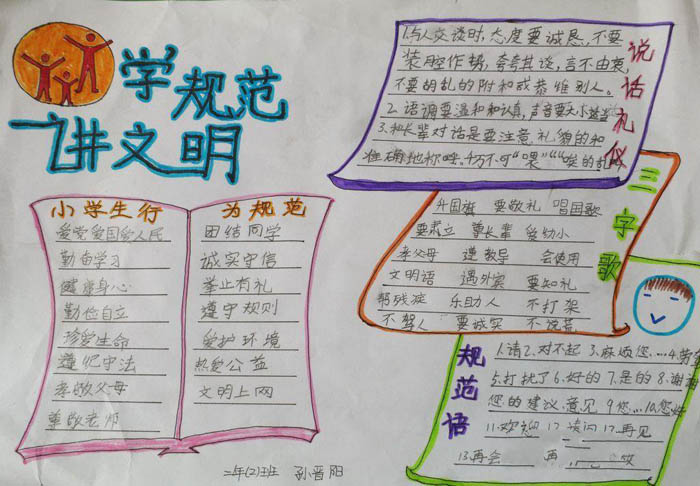 学规范
讲文明
小学生行为规范
爱党爱国爱人民
勤奋学习
健康身心
勤俭自立
珍爱生命
遵纪守法
孝敬父母
尊敬老师
团结同学
诚实守信
举止有礼
遵守规则
爱护环境
热爱公益
文明上网
二年(2)班 孙晋阳
说话礼仪
1.与人交谈时,态度要诚恳,不要
装腔作势,夸夸其谈,言不由衷,
不要胡乱的附和或恭维别人。
2.语调要温和和认真,声音要大小
3.和长辈对话是要注意礼貌的和
准确地称呼。千万不可“喂”“唉”的
三字歌
升国旗 要敬礼 唱国歌
要肃立 尊长辈 爱幼小
孝父母 遵教导 会使用
文明语 遇外宾 要知礼
帮残疾 乐助人 不打架
不骂人 要诚实 不说谎
规范语
1.请2.对不起 3.麻烦您....4.劳
5.打扰了6.好的7.是的8.谢谢
您的建议.意见 9您...10.您好
11.欢迎 12 请问 17.再见
13.再会 再